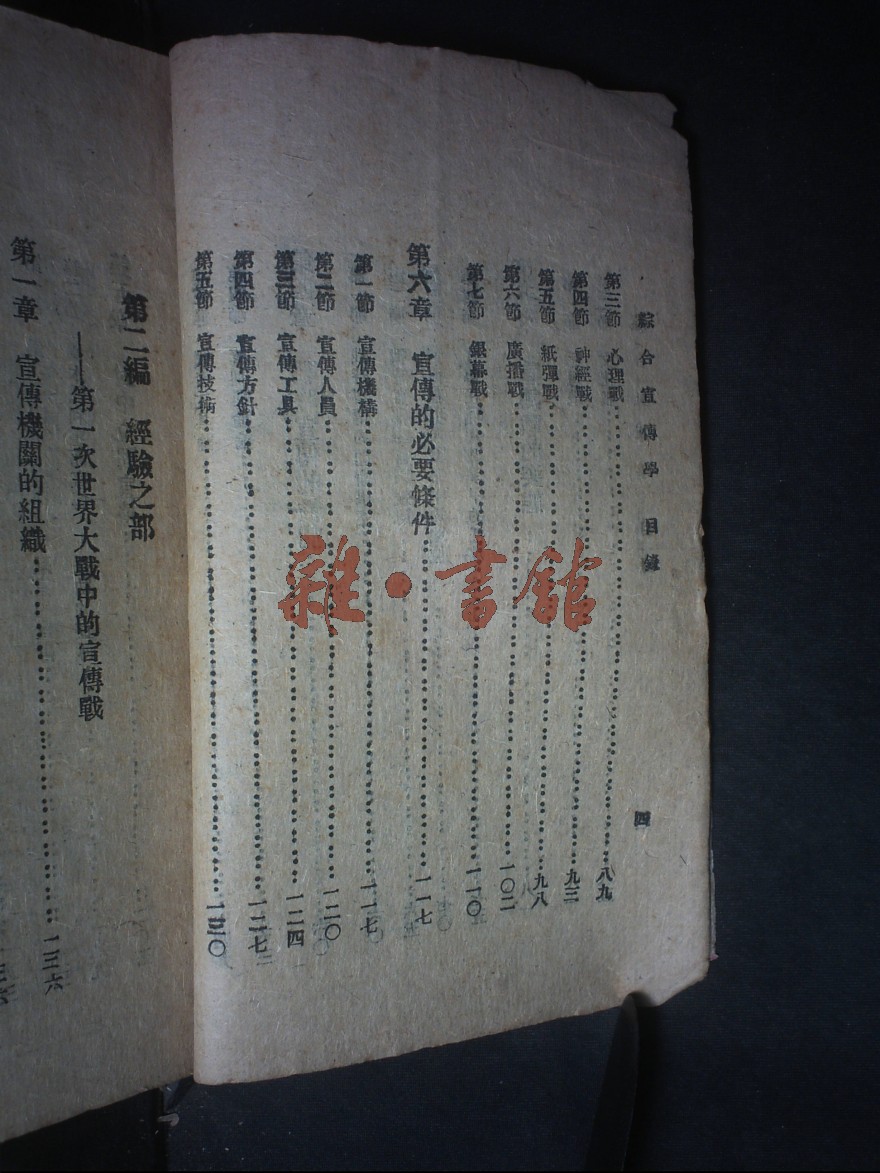 綜合宣傳學 目錄 四
第三節 心理戰 八九
第四節 神經戰 九三
第五節 紙彈戰 九八
第六節 廣播戰 一〇二
第七節 銀幕戰 一一〇
第六章 宣傳的必要條件 一一七
第一節 宣傳機構 一一七
第二節 宣傳人員 一二〇
第三節 宣傳工具 一二四
第四節 宣傳方針 一二七
第五節 宣傳技術 一三〇
第二編 經驗之部
——第一次世界大戰中的宣傳戰
第一章 宣傳機關的組織 一三六
雜·書館